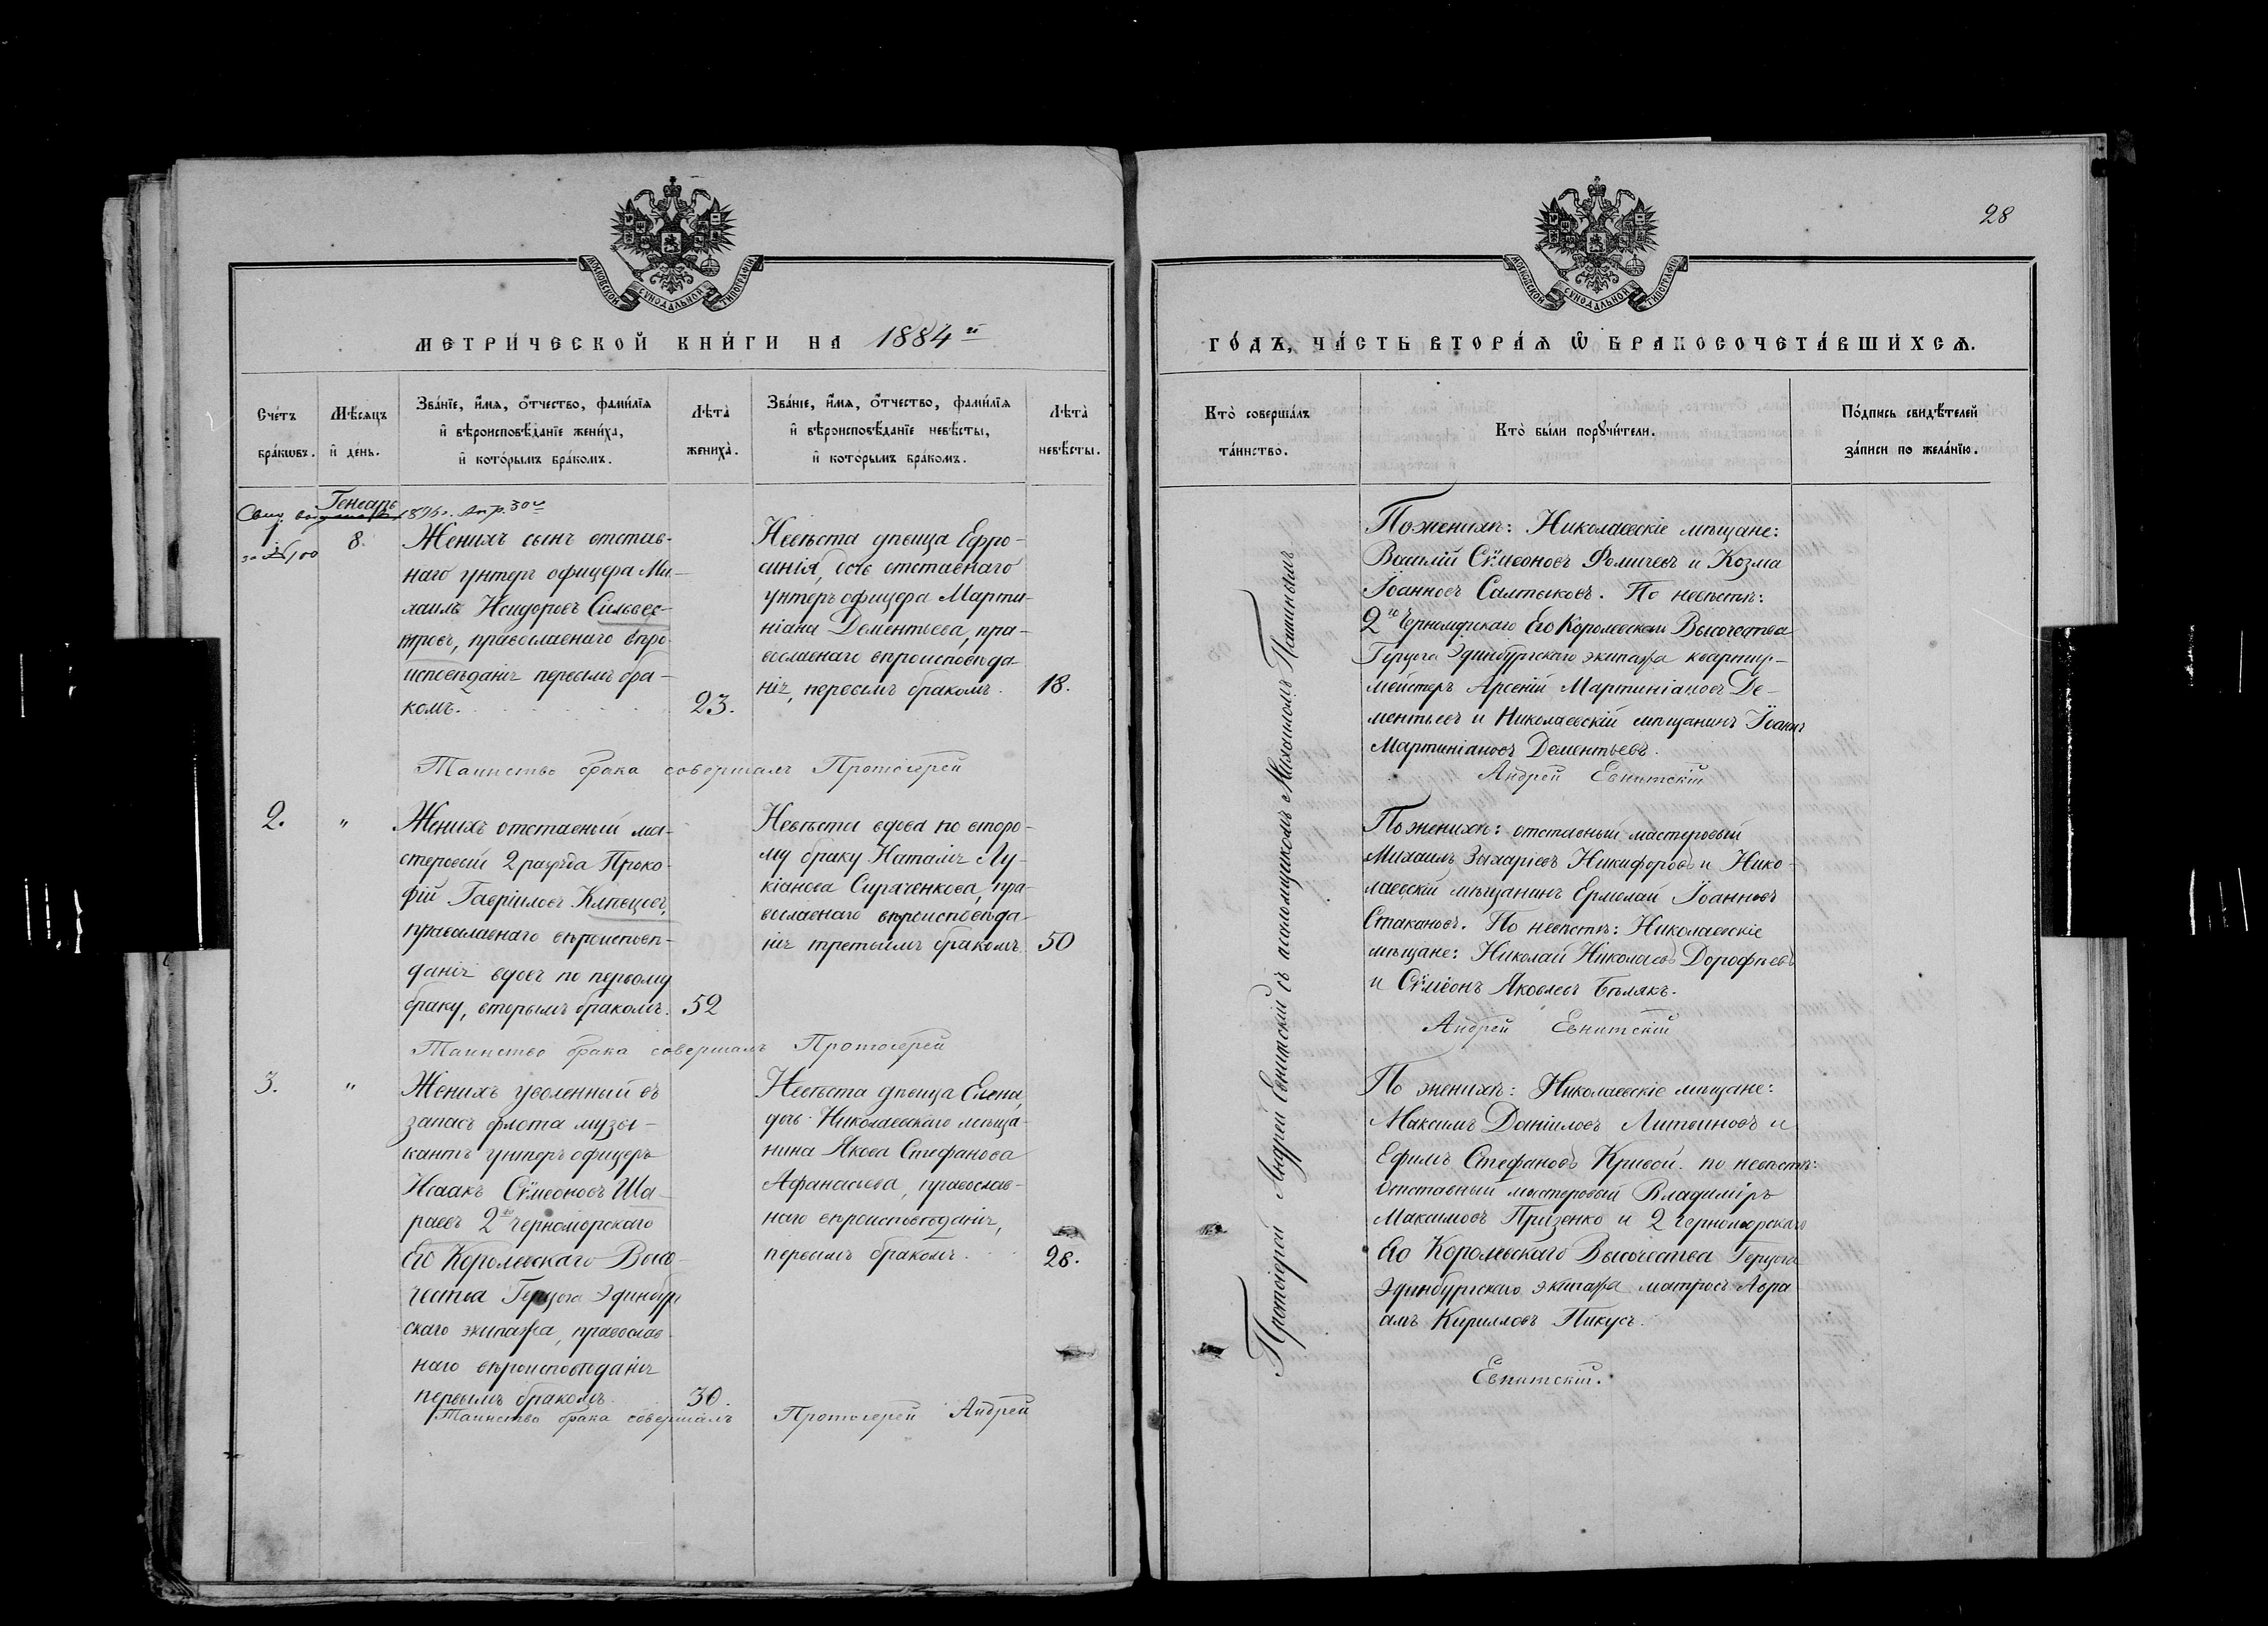 28
МОСКОВСКОЙ СѴНОДАЛЬНОЙ ТИПОГРАФІИ
МОСКОВСКОЙ СѴНОДАЛЬНОЙ ТИПОГРАФІИ
МЕТРИ́ЧЕСКОЙ КНИ́ГИ НА 1884й
ГО́ДЪ, ЧА́СТЬ ВТОРА́Ѧ Ѽ БРАКОСОЧЕТА́ВШИХСѦ.
Сче́тъ бра́кѡвъ.
Мѣ́сяцъ и҆ де́нь.
Зва́нїе, и҆́мѧ, ѻ҆́тчество, фами́лїѧ
и҆ вѣроисповѣ́данїе жениха̀,
и҆ кото́рымъ бра́комъ.
Лѣта̀ жениха̀.
Зва́нїе, и҆́мѧ, ѻ҆́тчество, фами́лїѧ
и҆ вѣроисповѣ́данїе невѣ́сты,
и҆ кото́рымъ бра́комъ.
Лѣта̀ невѣ́сты.
Кто̀ соверша́лъ та́инство.
Кто̀ бы́ли порꙋчи́тели.
По́дпись свидѣ́телей за́писи по жела́нїю.
Генварь
1
8.
за № 100
Женихъ сынъ отстав-
наго унтеръ офицера Ми-
хаилъ Исидоровъ Сильвес-
тровъ, православнаго вѣро-
исповѣданія первымъ бра-
комъ.
23.
Невѣста дѣвица Ефро-
синія, дочь отставнаго
унтеръ офицера Марти-
ніана Дементьева, пра-
вославнаго вѣроисповѣда-
нія, первымъ бракомъ.
18.
По женихѣ: Николаевскіе мѣщане:
Василій Сѵмеоновъ Фомичевъ и Козма
Іоанновъ Салтыковъ. По невѣстѣ:
2го Черноморскаго Его Королевскаго Высочества
Герцога Эдинбургскаго экипажа квартир-
мейстеръ Арсеній Мартиніановъ Де-
ментьевъ и Николаевскій мѣщанинъ Іоаннъ
Мартиніановъ Дементьевъ.
Таинство брака совершалъ Протоіерей
Андрей Евнитскій
2.
"
Женихъ отставный ма-
стеровый 2 разряда Проко-
фій Гавріиловъ Клѣвцовъ,
православнаго вѣроисповѣ-
данія вдовъ по первому
браку, вторымъ бракомъ.
52
Невѣста вдова по второ-
му браку Наталія Лу-
кіанова Сиряченкова, пра-
вославнаго вѣроисповѣда-
нія третьимъ бракомъ.
50
По женихѣ: отставный мастеровый
Михаилъ Захаріевъ Никифоровъ и Нико-
лаевскій мѣщанинъ Ермолай Іоанновъ
Стакановъ. По невѣстѣ: Николаевскіе
мѣщане: Николай Николаевъ Дорофѣевъ
и Сѵмеонъ Яковлевъ Бѣлякъ.
Таинство брака совершалъ Протоіерей
Андрей Евнитскій
3.
"
Женихъ уволенный въ
запасъ флота музы-
кантъ унтеръ офицеръ
Исаакъ Сѵмеоновъ Ша-
раевъ 2го Черноморскаго
Его Королевскаго Высо-
чества Герцога Эдинбург
скаго экипажа, православ
наго вѣроисповѣданія
первымъ бракомъ.
30.
Невѣста дѣвица Елена,
дочь Николаевскаго мѣща-
нина Якова Стефанова
Афанасьева, православ-
наго вѣроисповѣданія,
первымъ бракомъ.
28.
По женихѣ: Николаевскіе мѣщане:
Максимъ Даніиловъ Литвиновъ и
Ефимъ Стефановъ Кривой. по невѣстѣ:
Отставный мастеровый Владиміръ
Максимовъ Призенко и 2 Черноморскаго
Его Королевскаго Высочества Герцога
Эдинбургскаго экипажа матросъ Авра
амъ Кирилловъ Пикусъ.
Таинство брака совершалъ Протоіерей Андрей
Евнитскій.
Протоіерей Андрей Евнитскій съ псаломщикомъ Михаиломъ